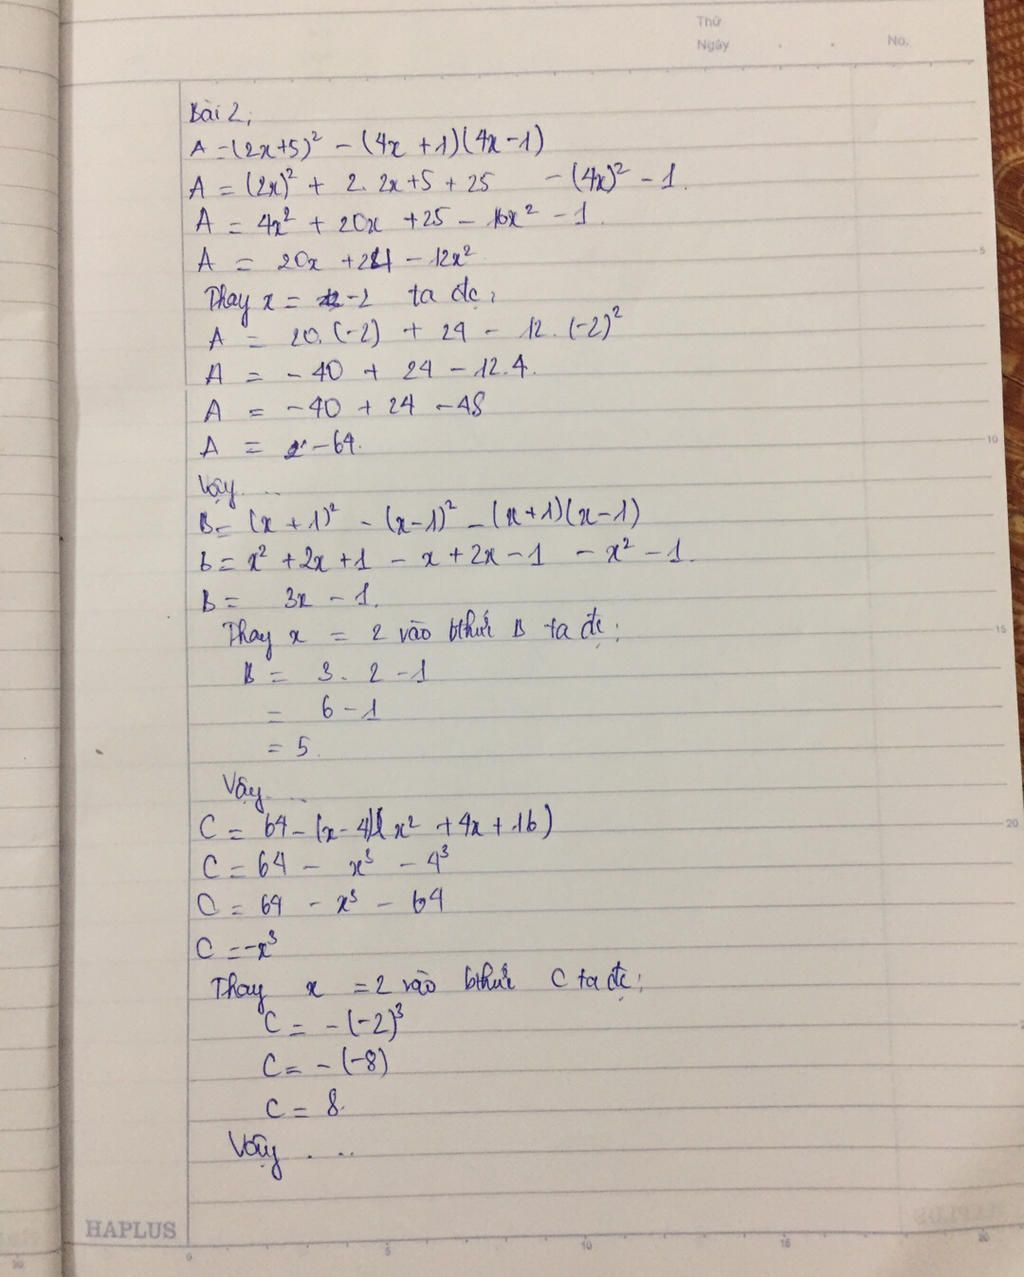 Thứ
Ngày . . No.
Bài 2;
A = (2x+5)² - (4x + 1)(4x - 1)
A = (2x)² + 2. 2x+5 + 25 - (4x)² - 1.
A = 4x² + 20x + 25 - 16x² - 1.
A = 20x + 24 - 12x²
Thay x = -2 ta đc;
A = 20. (-2) + 24 - 12. (-2)²
A = - 40 + 24 - 12.4.
A = - 40 + 24 - 48
A = - 64.
Vậy ...
B = (x + 1)² - (x - 1)² - (x + 1)(x - 1)
B = x² + 2x + 1 - x + 2x - 1 - x² - 1.
B = 3x - 1.
Thay x = 2 vào bthức B ta đc;
B = 3. 2 - 1
= 6 - 1
= 5.
Vậy ...
C = 64 - (x - 4)(x² + 4x + 16)
C = 64 - x³ - 4³
C = 64 - x³ - 64
C = -x³
Thay x = 2 vào bthức C ta đc;
C = - (-2)³
C = - (-8)
C = 8.
Vậy . ..
HAPLUS
5
10
15
20
0 5 10 15 20